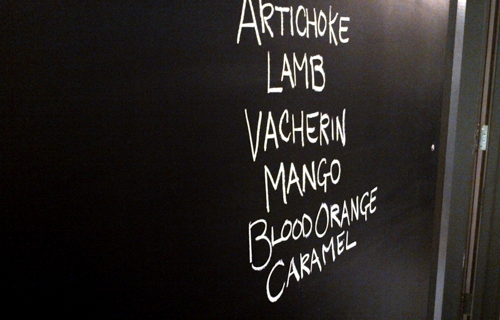 ARTICHOKE
LAMB
VACHERIN
MANGO
BLOOD ORANGE
CARAMEL